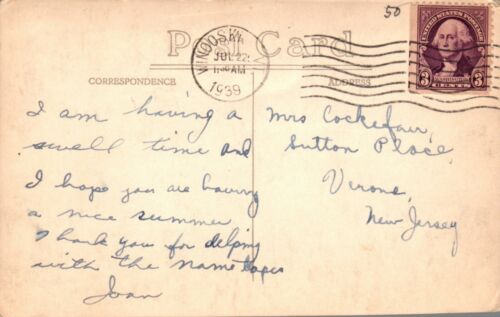 50
Post Card
WINOOSKI
JUL 22
11 30 AM
1939
UNITED STATES POSTAGE
3 3
CENTS
CORRESPONDENCE
ADDRESS
I am having a
swell time and
I hope you are having
a nice summer
Thank you for helping
with the name tapes
Joan
Mrs Cockefair,
Sutton Place,
Verona,
New Jersey